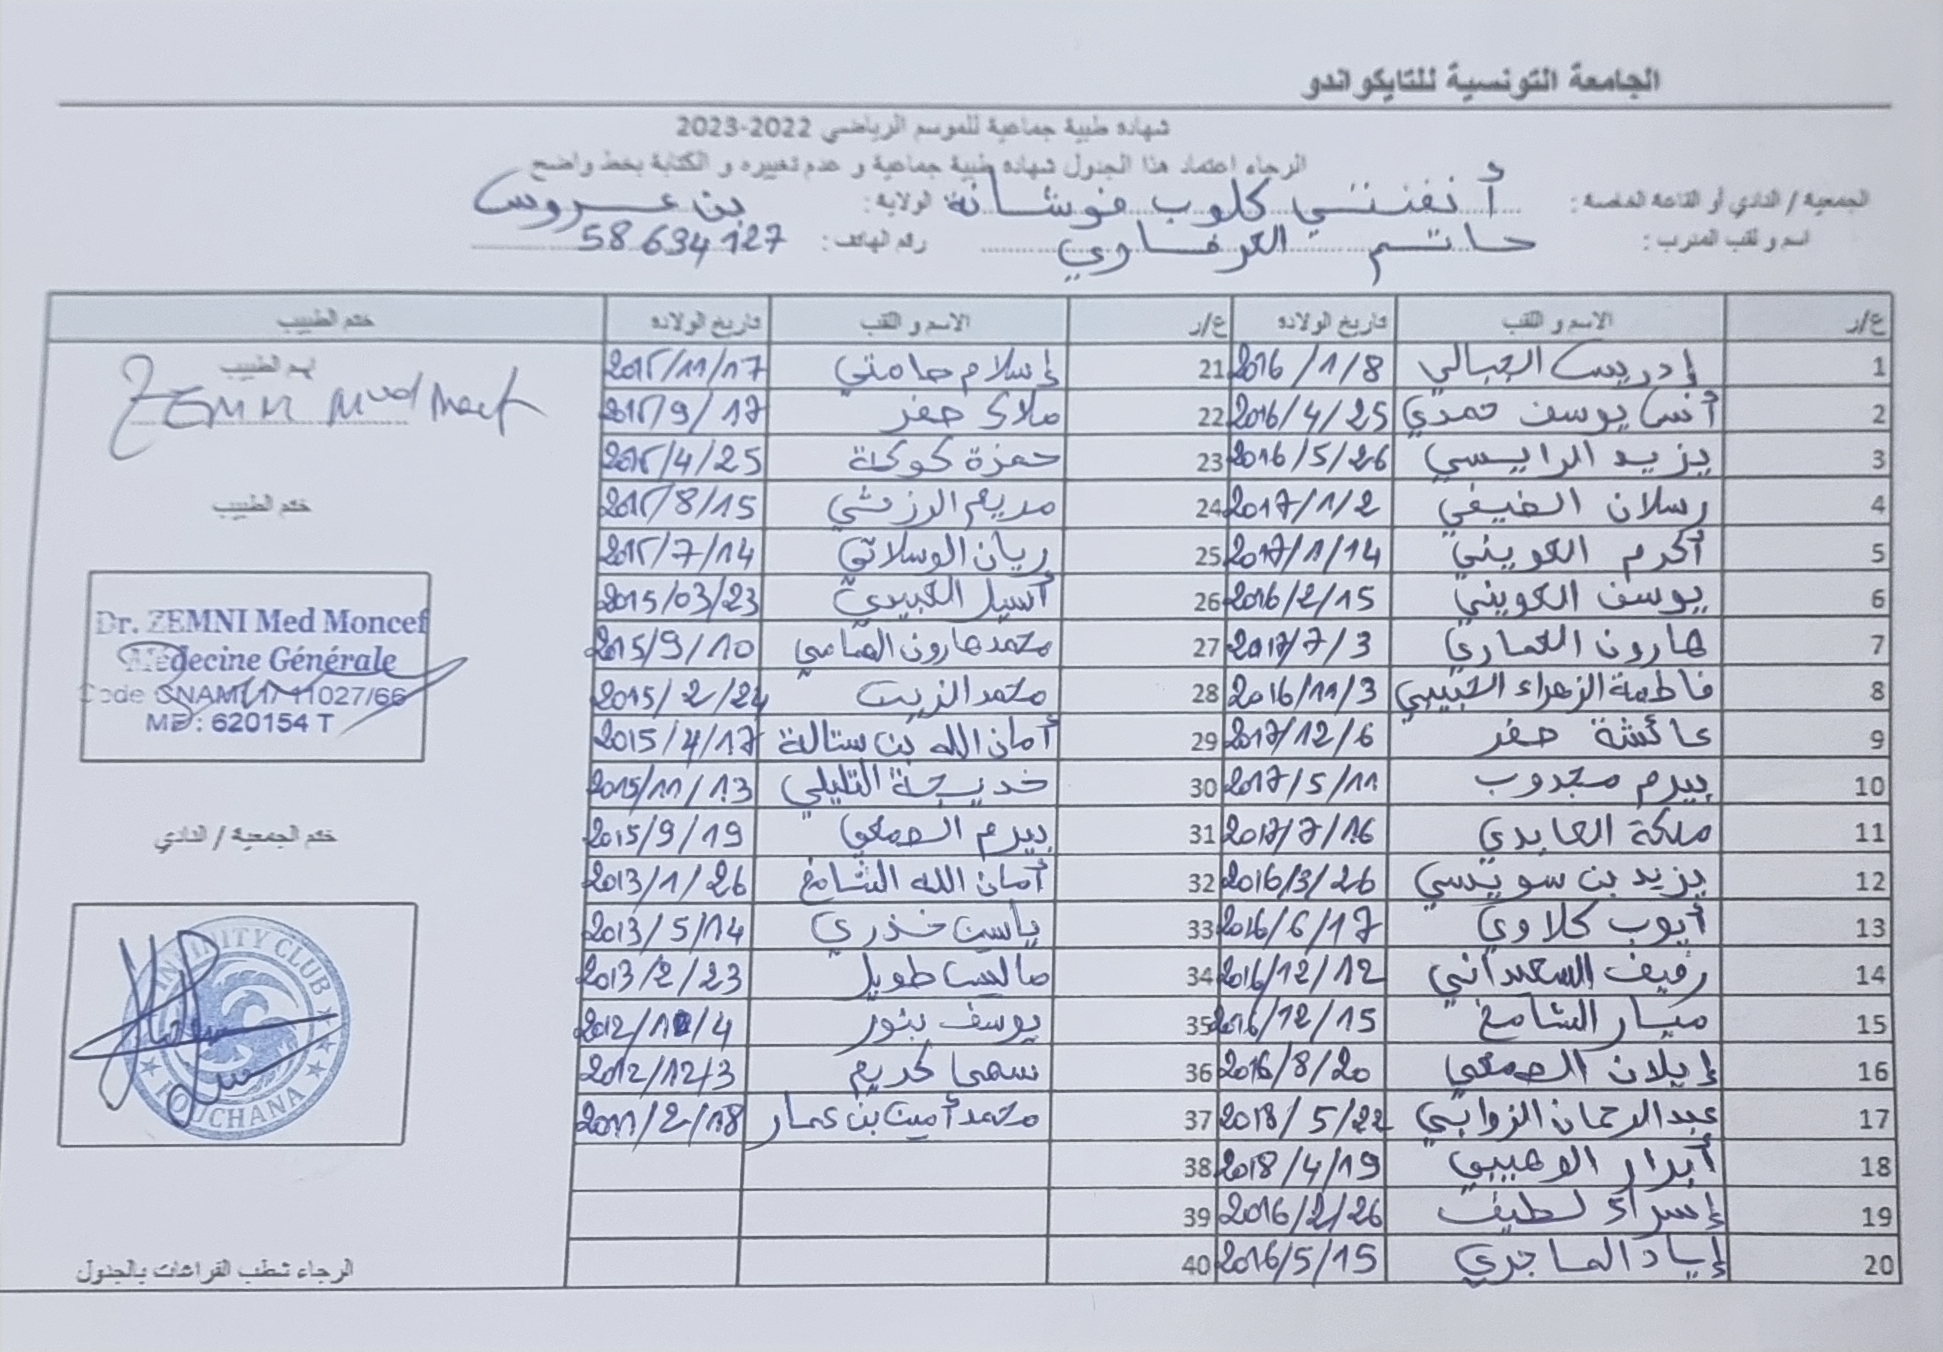 الجامعة التونسية للتايكواندو
شهادة طبية جماعية للموسم الرياضي 2022-2023
الرجاء اعتماد هذا الجدول شهادة طبية جماعية و عدم تغييره و الكتابة بخط واضح
الجمعية / النادي أو القاعة الخاصة: أنفنتي كلوب فوشانة الولاية: بن عروس
اسم و لقب المدرب: حاتم العرفاوي رقم الهاتف: 58.634.127
ع/ر الاسم و اللقب تاريخ الولادة ع/ر الاسم و اللقب تاريخ الولادة ختم الطبيب
1 إدريس الجبالي 2016/1/8 21 إسلام حامتي 2015/11/17
2 أنس يوسف حمدي 2016/4/25 22 ملاك جفر 2015/9/17
3 يزيد الرايسي 2016/5/26 23 حمزة كوكة 2015/4/25
4 رسلان الضيفي 2017/1/2 24 مريم الرزقي 2015/8/15
5 أكرم الكويني 2017/1/14 25 ريان الوسلاتي 2015/7/14
6 يوسف الكويني 2016/2/15 26 أسيل العبيدي 2015/03/23
7 هارون العماري 2017/7/3 27 محمد هارون الهمامي 2015/9/10
8 فاطمة الزهراء الحبيبي 2016/11/3 28 محمد الزيت 2015/2/24
9 عائشة جفر 2017/12/6 29 أمان الله بن ستالة 2015/4/17
10 بيرم مجدوب 2017/5/11 30 خديجة التليلي 2015/11/13
11 ملكة العابدي 2017/7/16 31 بيرم الصمعي 2015/9/19
12 يزيد بن سويسي 2016/3/26 32 أمان الله الشامخ 2013/1/26
13 أيوب كلاوي 2016/6/17 33 ياسين خذري 2013/5/14
14 رفيف السعيداني 2016/12/12 34 ماليس طويل 2013/2/23
15 ميار الشامخ 2016/12/15 35 يوسف بنور 2012/ /4
16 إيلان الصمعي 2016/8/20 36 سهى كريم 2012/12/3
17 عبد الرحمان الزوابي 2018/5/22 37 محمد أمين بن عمار 2011/2/18
18 أبرار الوهيبي 2018/4/19 38
19 إسراء لطيف 2016/2/26 39
20 إياد الماجري 2016/5/15 40
اسم الطبيب
ZEMNI Med Moncef
ختم الطبيب
Dr. ZEMNI Med Moncef
Médecine Générale
Code CNAM 1/ 11027/66
ME : 620154 T
ختم الجمعية / النادي
INFINITY CLUB
FOUCHANA
الرجاء شطب الفراغات بالجدول